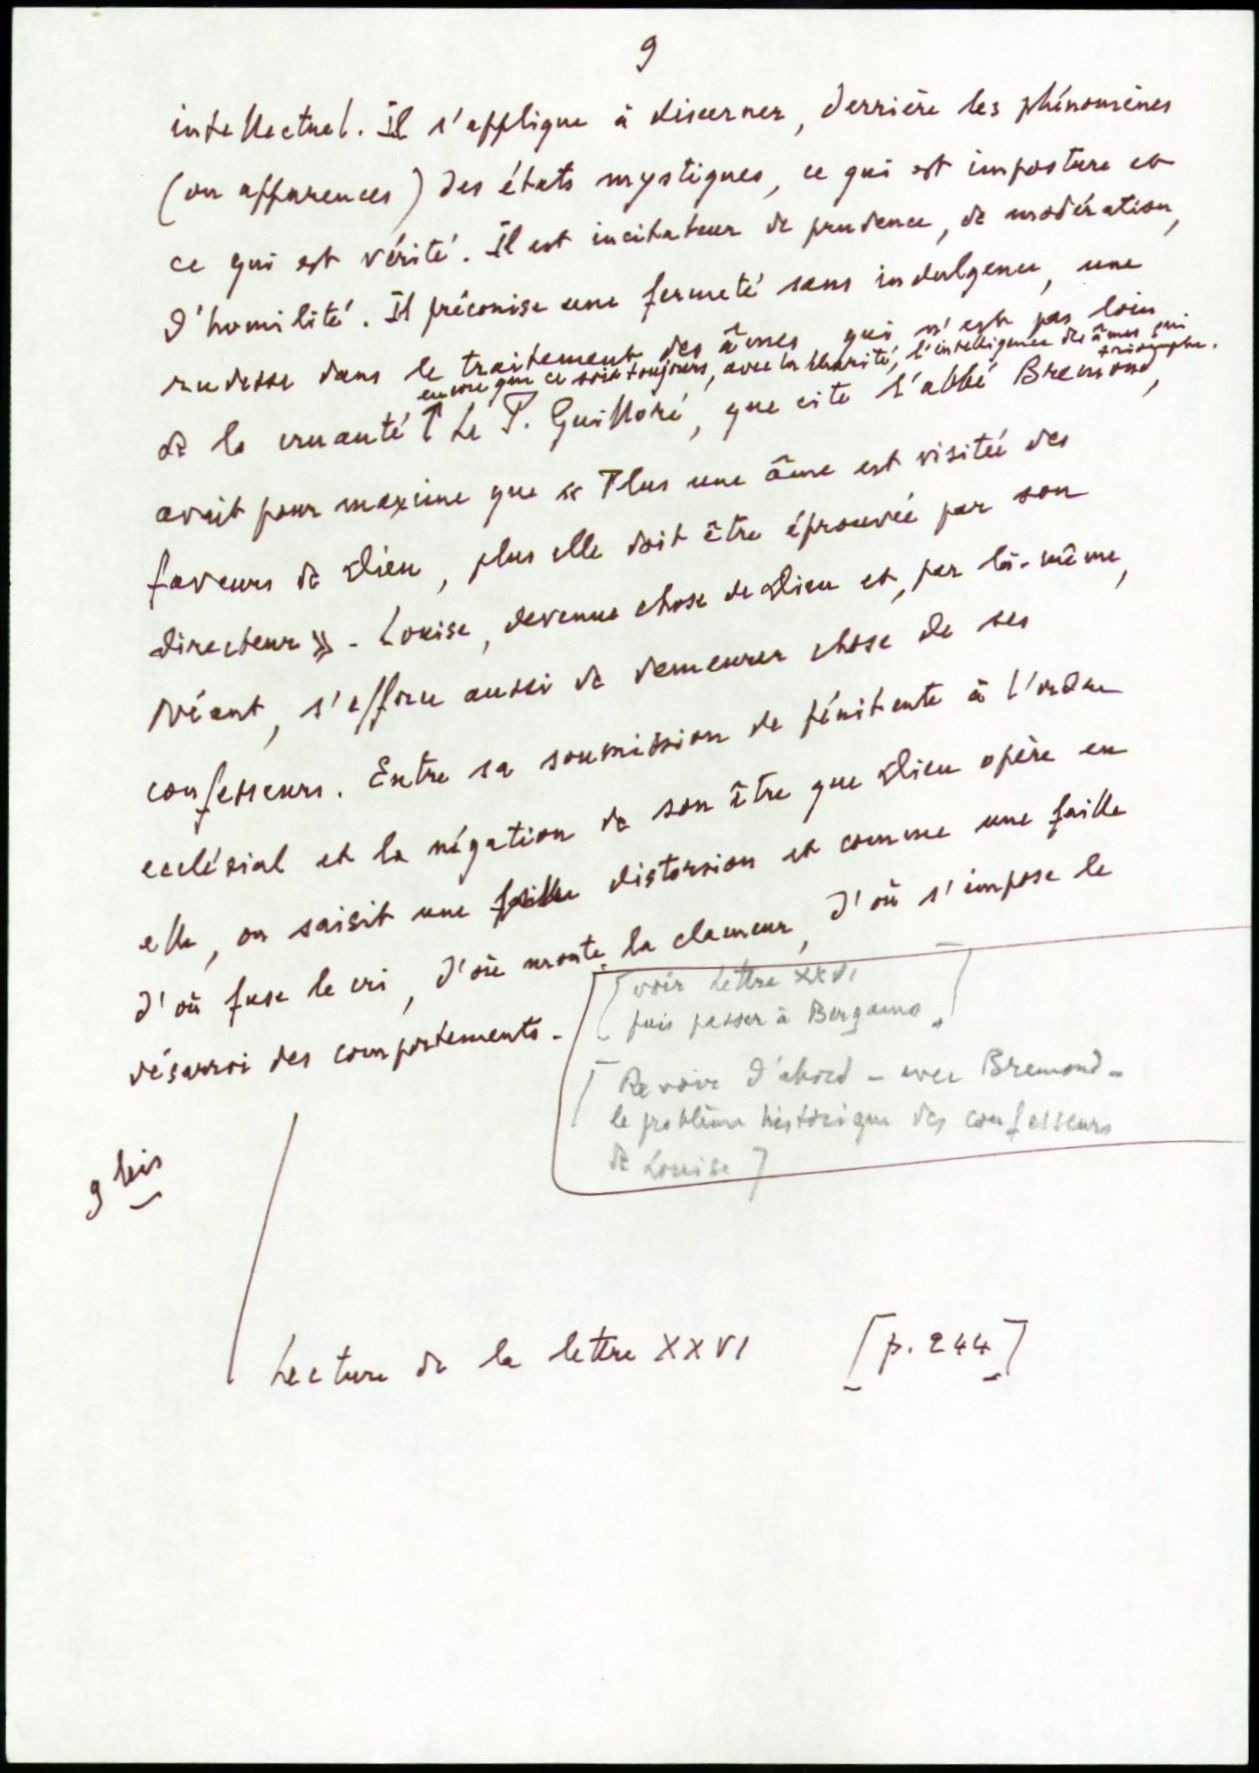 9
intellectuel. Il s'applique à discerner, derrière les phénomènes
(ou apparences) des états mystiques, ce qui est imposture et
ce qui est vérité. Il est incitateur de prudence, de modération,
d'humilité. Il préconise une fermeté sans indulgence, une
rudesse dans le traitement des âmes qui n'est pas loin
encore que ce soit toujours, avec la charité, l'intelligence des âmes qui
triomphe.
de la cruauté ↑ Le P. Guilloré, que cite l'abbé Bremond,
avait pour maxime que « Plus une âme est visitée des
faveurs de Dieu, plus elle doit être éprouvée par son
directeur ». Louise, devenue chose de Dieu et, par là-même,
Néant, s'efforce aussi de demeurer chose de ses
confesseurs. Entre sa soumission de pénitente à l'ordre
ecclésial et la négation de son être que Dieu opère en
elle, on saisit une faille distorsion et comme une faille
d'où fuse le cri, d'où monte la clameur, d'où s'impose le
désarroi des comportements.
[voir Lettre XXVI
puis passer à Bergamo.]
[Revoir d'abord - avec Bremond -
le problème historique des confesseurs
de Louise]
9 bis
Lecture de la lettre XXVI [p. 244]